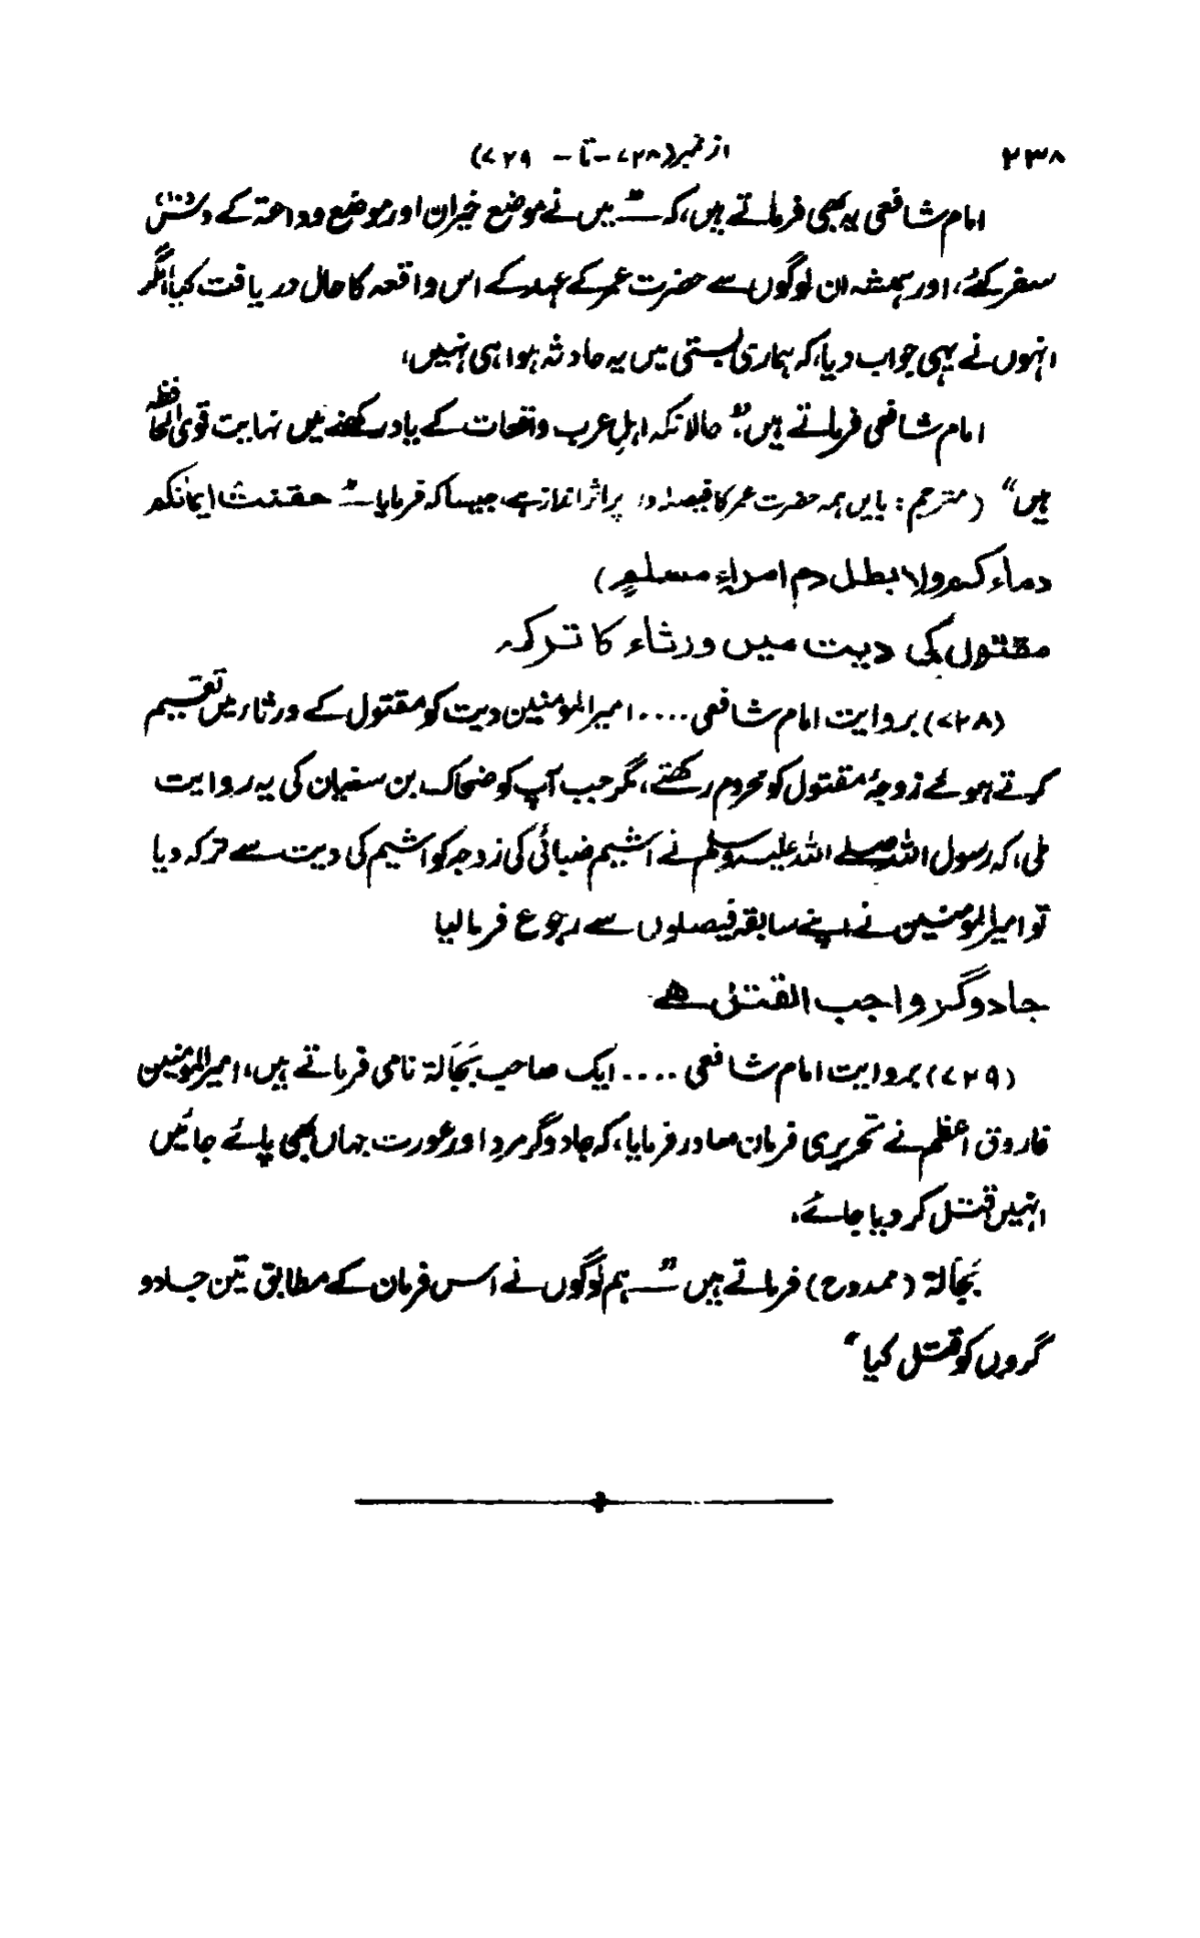 ۲۳۸ از نمبر (۷۲۸ - تا - ۷۲۹)
امام شافعی یہ بھی فرماتے ہیں، کہ " میں نے موضع خیران اور موضع وداعۃ کے دس
سفر کئے، اور ہمیشہ ان لوگوں سے حضرت عمر کے عہد کے اس واقعہ کا حال دریافت کیا، مگر
انہوں نے یہی جواب دیا، کہ ہماری بستی میں یہ حادثہ ہوا ہی نہیں،
امام شافعی فرماتے ہیں: " حالانکہ اہلِ عرب واقعات کے یاد رکھنے میں نہایت قوی الحافظہ
ہیں " (مترجم: بایں ہمہ حضرت عمر کا فیصلہ پر اثر انداز ہے، جیسا کہ فرمایا " حقنت ایمانکم
دماءکم ولا یطل دم امراءٍ مسلمٍ)
مقتول کی دیت میں ورثاء کا ترکہ
(۷۲۸) بروایت امام شافعی .... امیر المومنین دیت کو مقتول کے ورثاء میں تقسیم
کرتے ہوئے زوجۂ مقتول کو محروم رکھتے، مگر جب آپ کو ضحاک بن سفیان کی یہ روایت
ملی، کہ رسول اللہ صلے اللہ علیہ وسلم نے اشیم ضبائی کی زوجہ کو اشیم کی دیت سے ترکہ دیا
تو امیر المومنین نے اپنے سابقہ فیصلوں سے رجوع فرما لیا
جادوگر واجب القتل ہے
(۷۲۹) بروایت امام شافعی .... ایک صاحب بَجَالۃ نامی فرماتے ہیں، امیر المومنین
فاروق اعظم نے تحریری فرمان صادر فرمایا، کہ جادوگر مرد اور عورت جہاں بھی پائے جائیں
انہیں قتل کر دیا جائے.
بَجَالۃ (ممدوح) فرماتے ہیں " ہم لوگوں نے اس فرمان کے مطابق تین جادو
گروں کو قتل کیا "